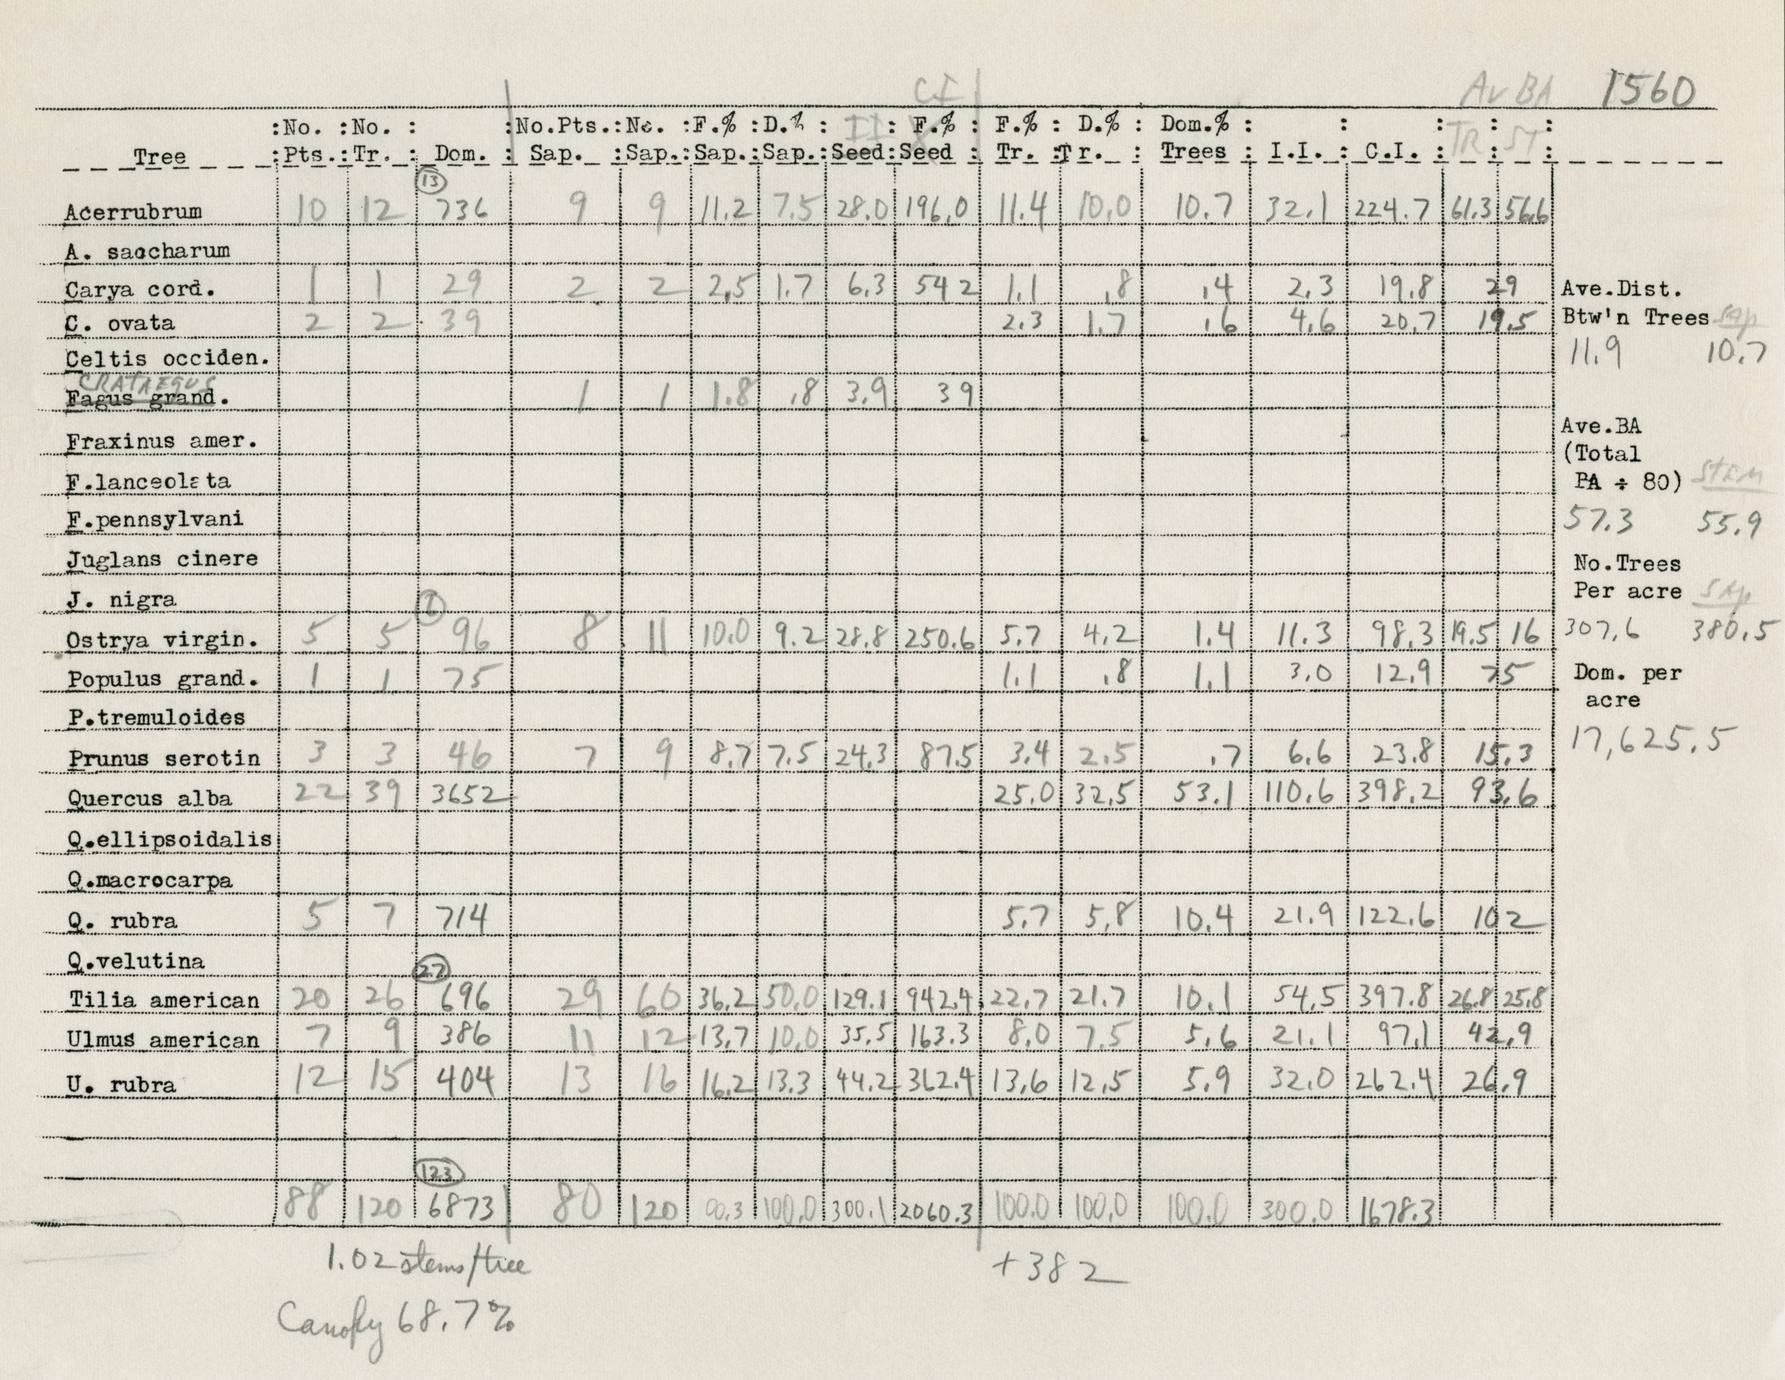 CI Av BA 1560
:No. :No. : :No.Pts.:No. :F.% :D.% : II : F.% : F.% : D.% : Dom.% : : : TR : ST :
Tree :Pts.:Tr. : Dom. : Sap. :Sap.:Sap.:Sap.:Seed:Seed : Tr. :Tr. : Trees : I.I. : C.I. : : :
13
Acerrubrum 10 12 736 9 9 11.2 7.5 28.0 196.0 11.4 10.0 10.7 32.1 224.7 61.3 56.6
A. saccharum
Carya cord. 1 1 29 2 2 2.5 1.7 6.3 54 2 1.1 .8 .4 2.3 19.8 29 Ave.Dist.
C. ovata 2 2 39 2.3 1.7 .6 4.6 20.7 19.5 Btw'n Trees Sap
Celtis occiden. 11.9 10.7
CRATAEGUS
Fagus grand. 1 1 1.8 .8 3.9 39
Fraxinus amer. Ave.BA
(Total
F.lanceolata BA ÷ 80) STEM
F.pennsylvani 57.3 55.9
Juglans cinere No.Trees
J. nigra Per acre Sap
1
Ostrya virgin. 5 5 96 8 11 10.0 9.2 28.8 250.6 5.7 4.2 1.4 11.3 98.3 19.5 16 307.6 380.5
Populus grand. 1 1 75 1.1 .8 1.1 3.0 12.9 75 Dom. per
acre
P.tremuloides
Prunus serotin 3 3 46 7 9 8.7 7.5 24.3 87.5 3.4 2.5 .7 6.6 23.8 15.3 17,625.5
Quercus alba 22 39 3652 25.0 32.5 53.1 110.6 398.2 93.6
Q.ellipsoidalis
Q.macrocarpa
Q. rubra 5 7 714 5.7 5.8 10.4 21.9 122.6 102
Q.velutina
27
Tilia american 20 26 696 29 60 36.2 50.0 129.1 942.4 22.7 21.7 10.1 54.5 397.8 26.8 25.8
Ulmus american 7 9 386 11 12 13.7 10.0 35.5 163.3 8.0 7.5 5.6 21.1 97.1 42.9
U. rubra 12 15 404 13 16 16.2 13.3 44.2 362.4 13.6 12.5 5.9 32.0 262.4 26.9
123
88 120 6873 80 120 100.0 300.1 2060.3 100.0 100.0 100.0 300.0 1678.3
1.02 stems/tree +382
Canopy 68.7%